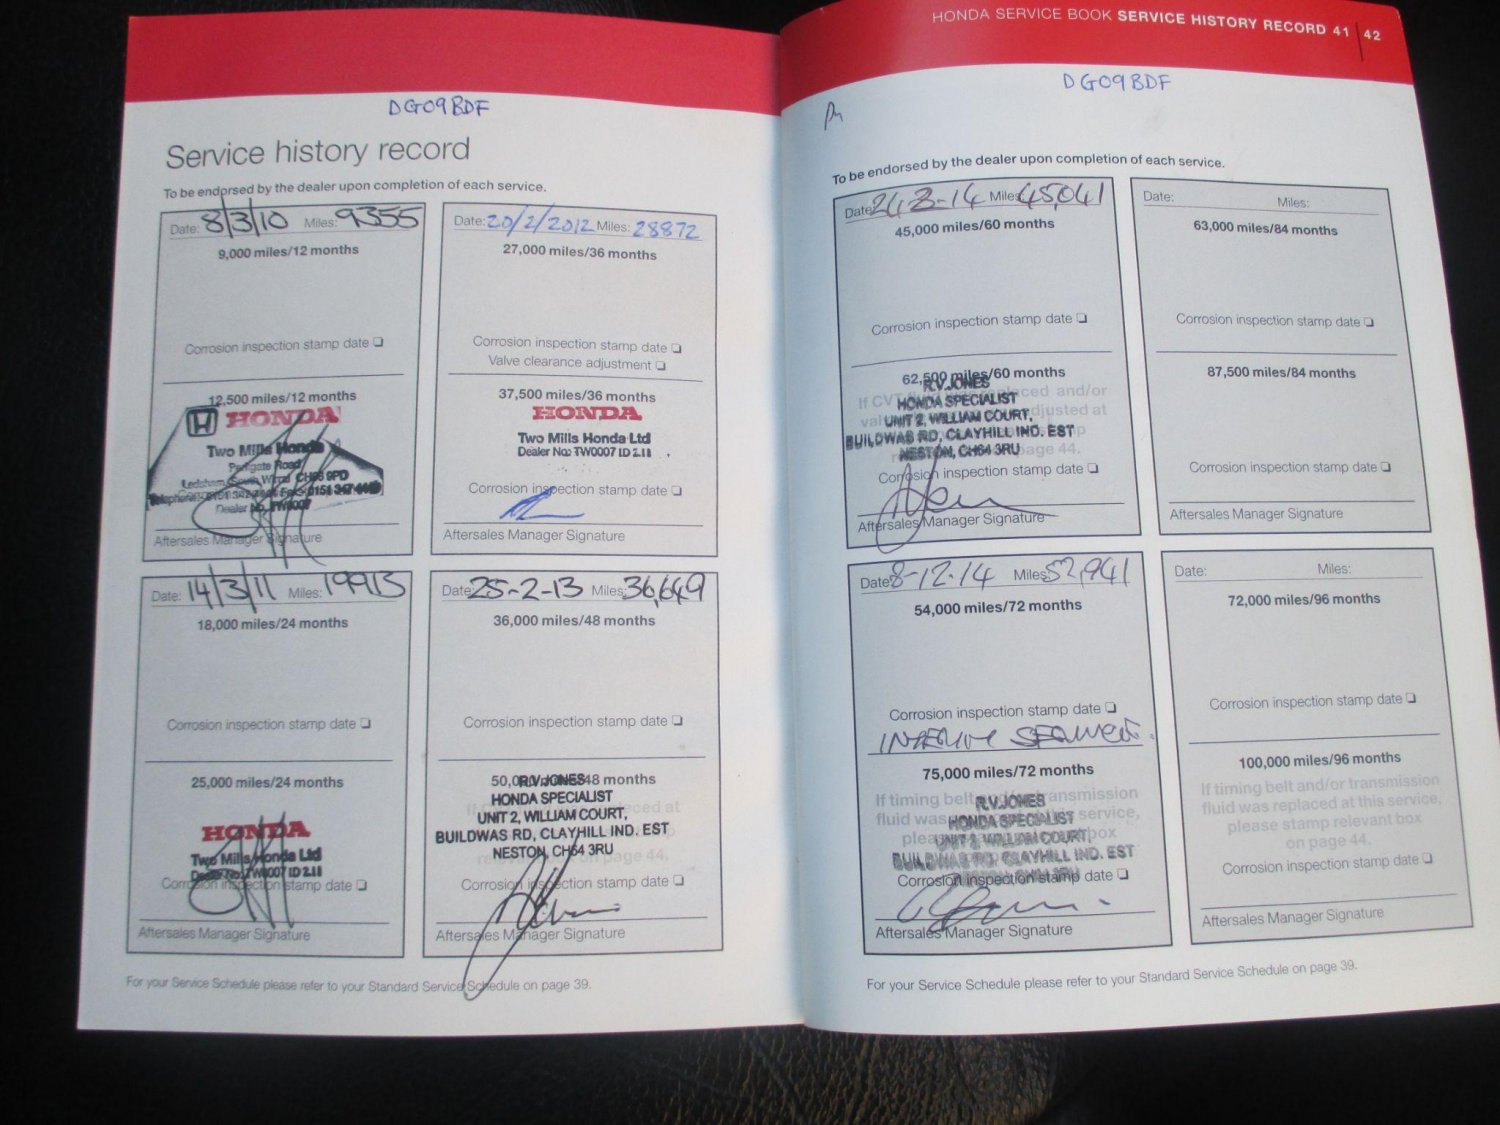 HONDA SERVICE BOOK SERVICE HISTORY RECORD 41 | 42
DG09BDF
Service history record
To be endorsed by the dealer upon completion of each service.
Date: 8/3/10 Miles: 9355
9,000 miles/12 months
Corrosion inspection stamp date
12,500 miles/12 months
HONDA
Two Mills Honda
Parkgate Road
Ledsham, South Wirral CH66 9PD
Dealer No. TW0007
Aftersales Manager Signature
Date: 20/2/2012 Miles: 28872
27,000 miles/36 months
Corrosion inspection stamp date
Valve clearance adjustment
37,500 miles/36 months
HONDA
Two Mills Honda Ltd
Dealer No: TW0007 ID 2.11
Corrosion inspection stamp date
Aftersales Manager Signature
Date: 14/3/11 Miles: 19913
18,000 miles/24 months
Corrosion inspection stamp date
25,000 miles/24 months
HONDA
Two Mills Honda Ltd
Dealer No: TW0007 ID 2.11
Corrosion inspection stamp date
Aftersales Manager Signature
Date: 25-2-13 Miles: 36,649
36,000 miles/48 months
Corrosion inspection stamp date
50,000 miles/48 months
R.V. JONES
HONDA SPECIALIST
UNIT 2, WILLIAM COURT,
BUILDWAS RD, CLAYHILL IND. EST
NESTON, CH64 3RU
Corrosion inspection stamp date
Aftersales Manager Signature
For your Service Schedule please refer to your Standard Service Schedule on page 39.
DG09BDF
To be endorsed by the dealer upon completion of each service.
Date: Miles: 45,041
45,000 miles/60 months
Corrosion inspection stamp date
62,500 miles/60 months
R.V. JONES
HONDA SPECIALIST
UNIT 2, WILLIAM COURT,
BUILDWAS RD, CLAYHILL IND. EST
NESTON, CH64 3RU
Corrosion inspection stamp date
Aftersales Manager Signature
Date: Miles:
63,000 miles/84 months
Corrosion inspection stamp date
87,500 miles/84 months
Corrosion inspection stamp date
Aftersales Manager Signature
Date: 8-12-14 Miles: 52,941
54,000 miles/72 months
Corrosion inspection stamp date
75,000 miles/72 months
If timing belt and/or transmission
fluid was service,
R.V. JONES
HONDA SPECIALIST
UNIT 2, WILLIAM COURT,
BUILDWAS RD, CLAYHILL IND. EST
Corrosion inspection stamp date
Aftersales Manager Signature
Date: Miles:
72,000 miles/96 months
Corrosion inspection stamp date
100,000 miles/96 months
If timing belt and/or transmission
fluid was replaced at this service,
please stamp relevant box
on page 44.
Corrosion inspection stamp date
Aftersales Manager Signature
For your Service Schedule please refer to your Standard Service Schedule on page 39.